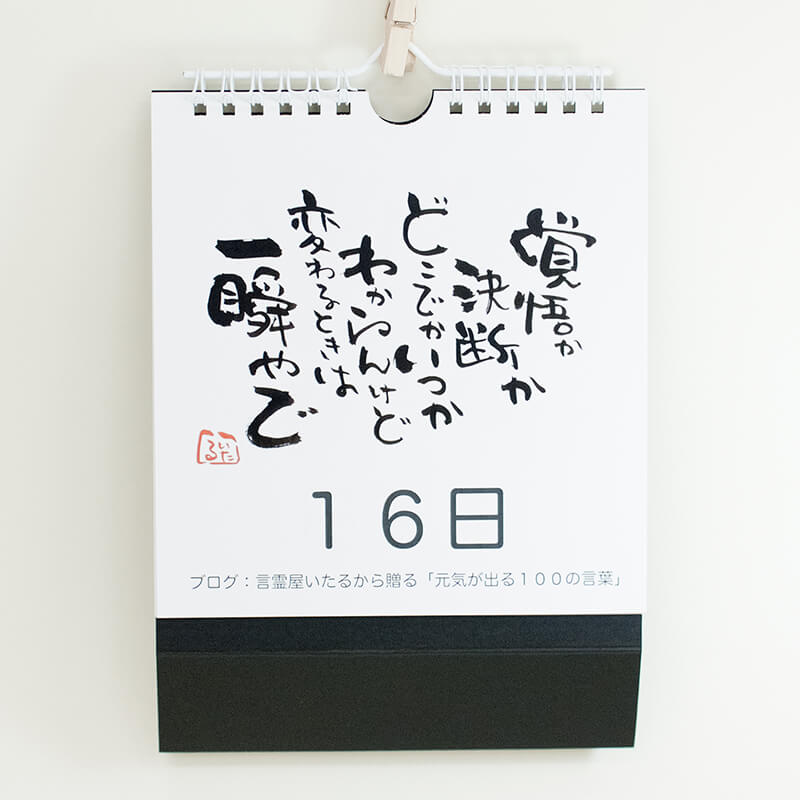 覚悟か
決断か
どこでかいつか
わからんけど
変わるときは
一瞬やで
いたる
16日
ブログ：言霊屋いたるから贈る「元気が出る100の言葉」